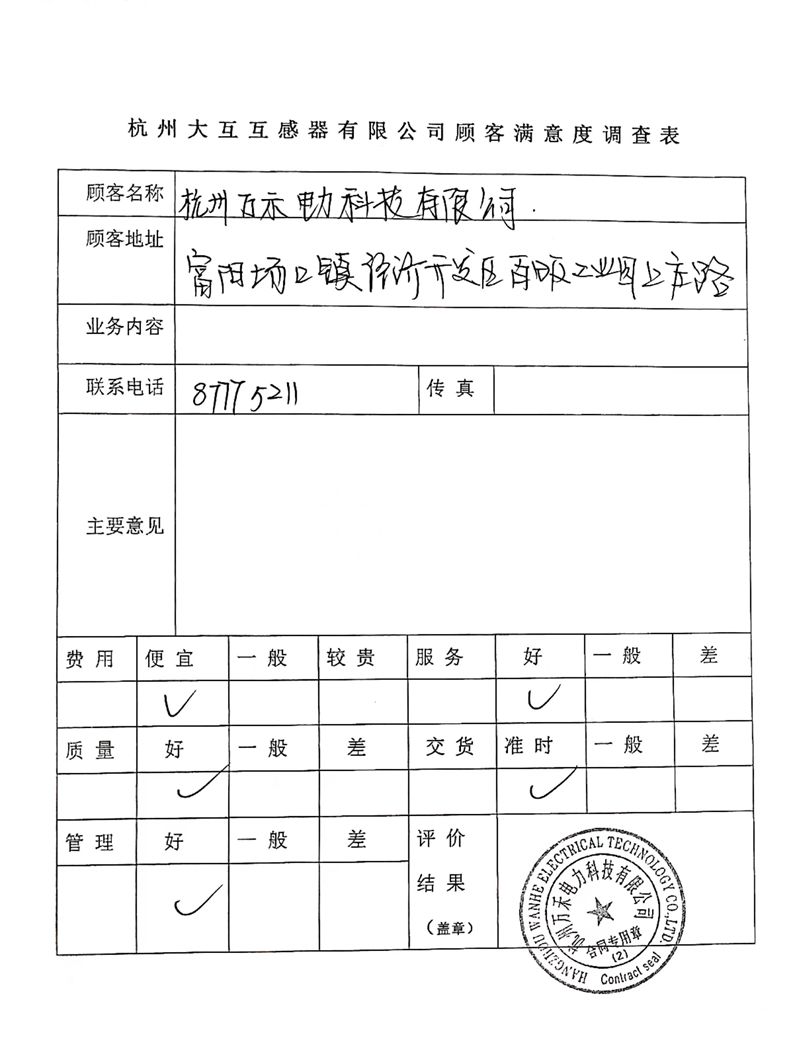 杭州大互互感器有限公司顾客满意度调查表
顾客名称 杭州万禾电力科技有限公司.
顾客地址 富阳场口镇经济开发区百丈畈工业园上庄路
业务内容
联系电话 87775211 传真
主要意见
费用 便宜 一般 较贵 服务 好 一般 差
✓ ✓
质量 好 一般 差 交货 准时 一般 差
✓ ✓
管理 好 一般 差 评价
结果
✓ (盖章)
HANGZHOU WANHE ELECTRICAL TECHNOLOGY CO.,LTD.
杭州万禾电力科技有限公司
合同专用章
(2)
Contract seal